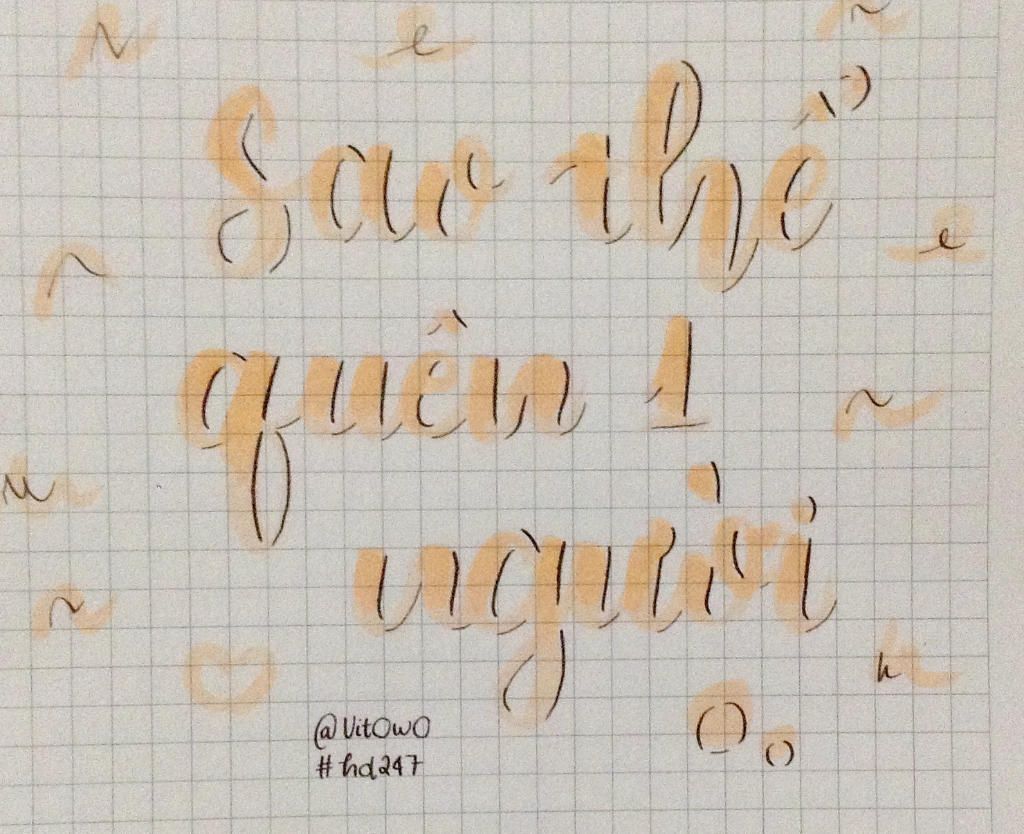 Sao thể
quên 1
người
@Vit0w0
#hd247